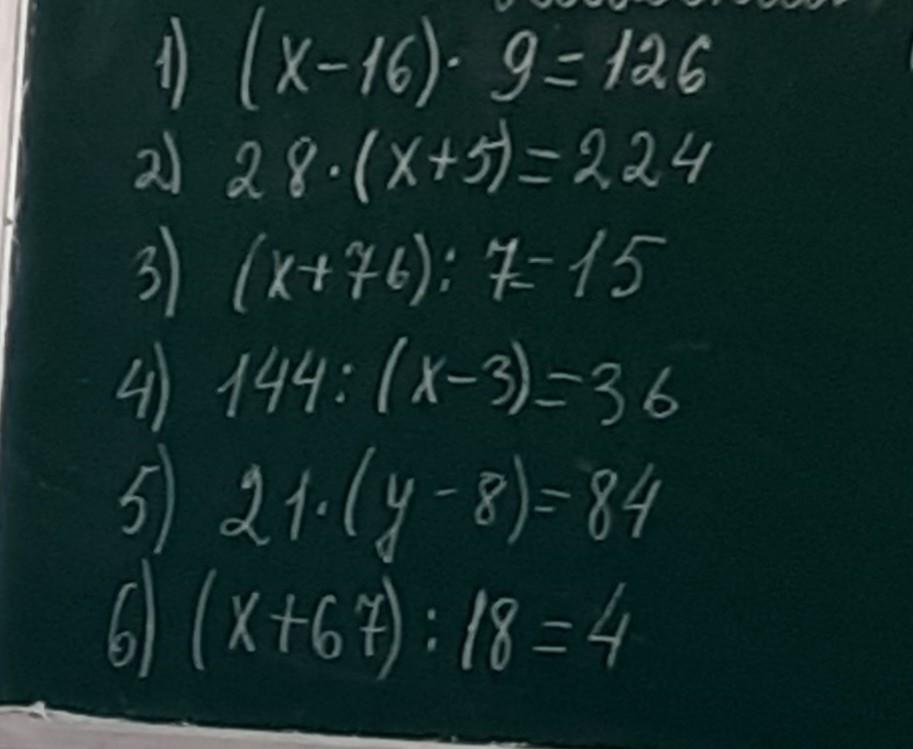 1) (x-16)· 9=126
2) 28·(x+5)=224
3) (x+76): 7=15
4) 144: (x-3)=36
5) 21·(y-8)=84
6) (x+67) : 18=4